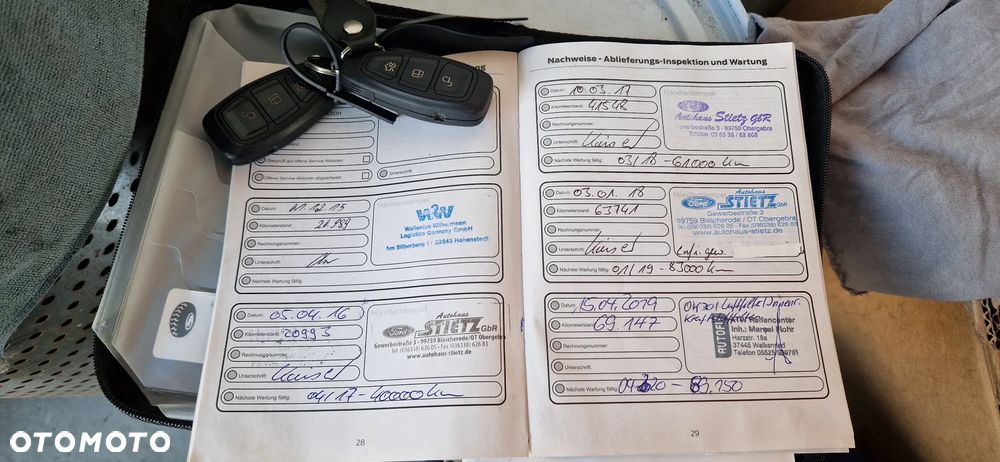 Überprüft auf offene Service Aktionen
Offene Service Aktionen abgearbeitet
Unterschrift:
Datum:
Händlerstempel
Kilometerstand:
Rechnungsnummer:
Unterschrift:
Nächste Wartung fällig:
Wallenius Wilhelmsen
Logistics Germany GmbH
Am Silberberg 1 · 33343 Hakenstedt
Datum: 05.04.16
Kilometerstand: 20993
Rechnungsnummer:
Unterschrift:
Nächste Wartung fällig: 04/17 - 40000 km
Händlerstempel
Autohaus
Ford STIETZ GbR
Gewerbestraße 3 - 99759 Bleicherode/OT Obergebra
Tel. (036338) 626 05 - Fax (036338) 626 83
www.autohaus-stietz.de
28
Nachweise - Ablieferungs-Inspektion und Wartung
Datum: 10.03.17
Kilometerstand: 41548
Rechnungsnummer:
Unterschrift:
Nächste Wartung fällig: 03/18 - 61000 km
Händlerstempel
Autohaus Stietz GbR
Gewerbestraße 3 - 99759 Obergebra
Datum: 03.01.18
Kilometerstand: 63741
Rechnungsnummer:
Unterschrift:
Nächste Wartung fällig: 01/19 - 83000 km
Händlerstempel
Autohaus
Ford STIETZ GbR
Gewerbestraße 3
99759 Bleicherode / OT Obergebra
Tel. (036338) 626 05 - Fax (036338) 626 83
www.autohaus-stietz.de
Datum: 15.04.2019
Kilometerstand: 69.147
Rechnungsnummer:
Unterschrift:
Nächste Wartung fällig:
Inh.: Marcel Flohr
Harzstr. 18a
37445 Walkenried
Telefon
29
OTOMOTO